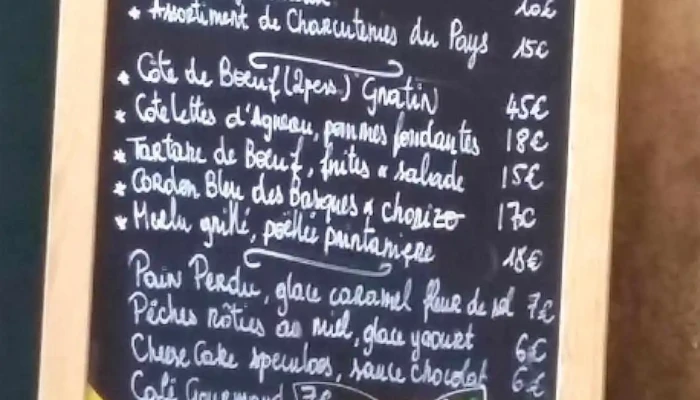 10€
* Assortiment de Charcuteries du Pays 15€
* Côte de Boeuf (2pers.) Gratin 45€
* Côtelettes d'Agneau, pommes fondantes 18€
* Tartare de Boeuf, frites & salade 15€
* Cordon Bleu des Basques & chorizo 17€
* Merlu grillé, poêlée printanière 18€
Pain Perdu, glace caramel fleur de sel 7€
Pêches rôties au miel, glace yaourt 6€
Cheese Cake speculoos, sauce chocolat 6€
Café Gourmand 7€